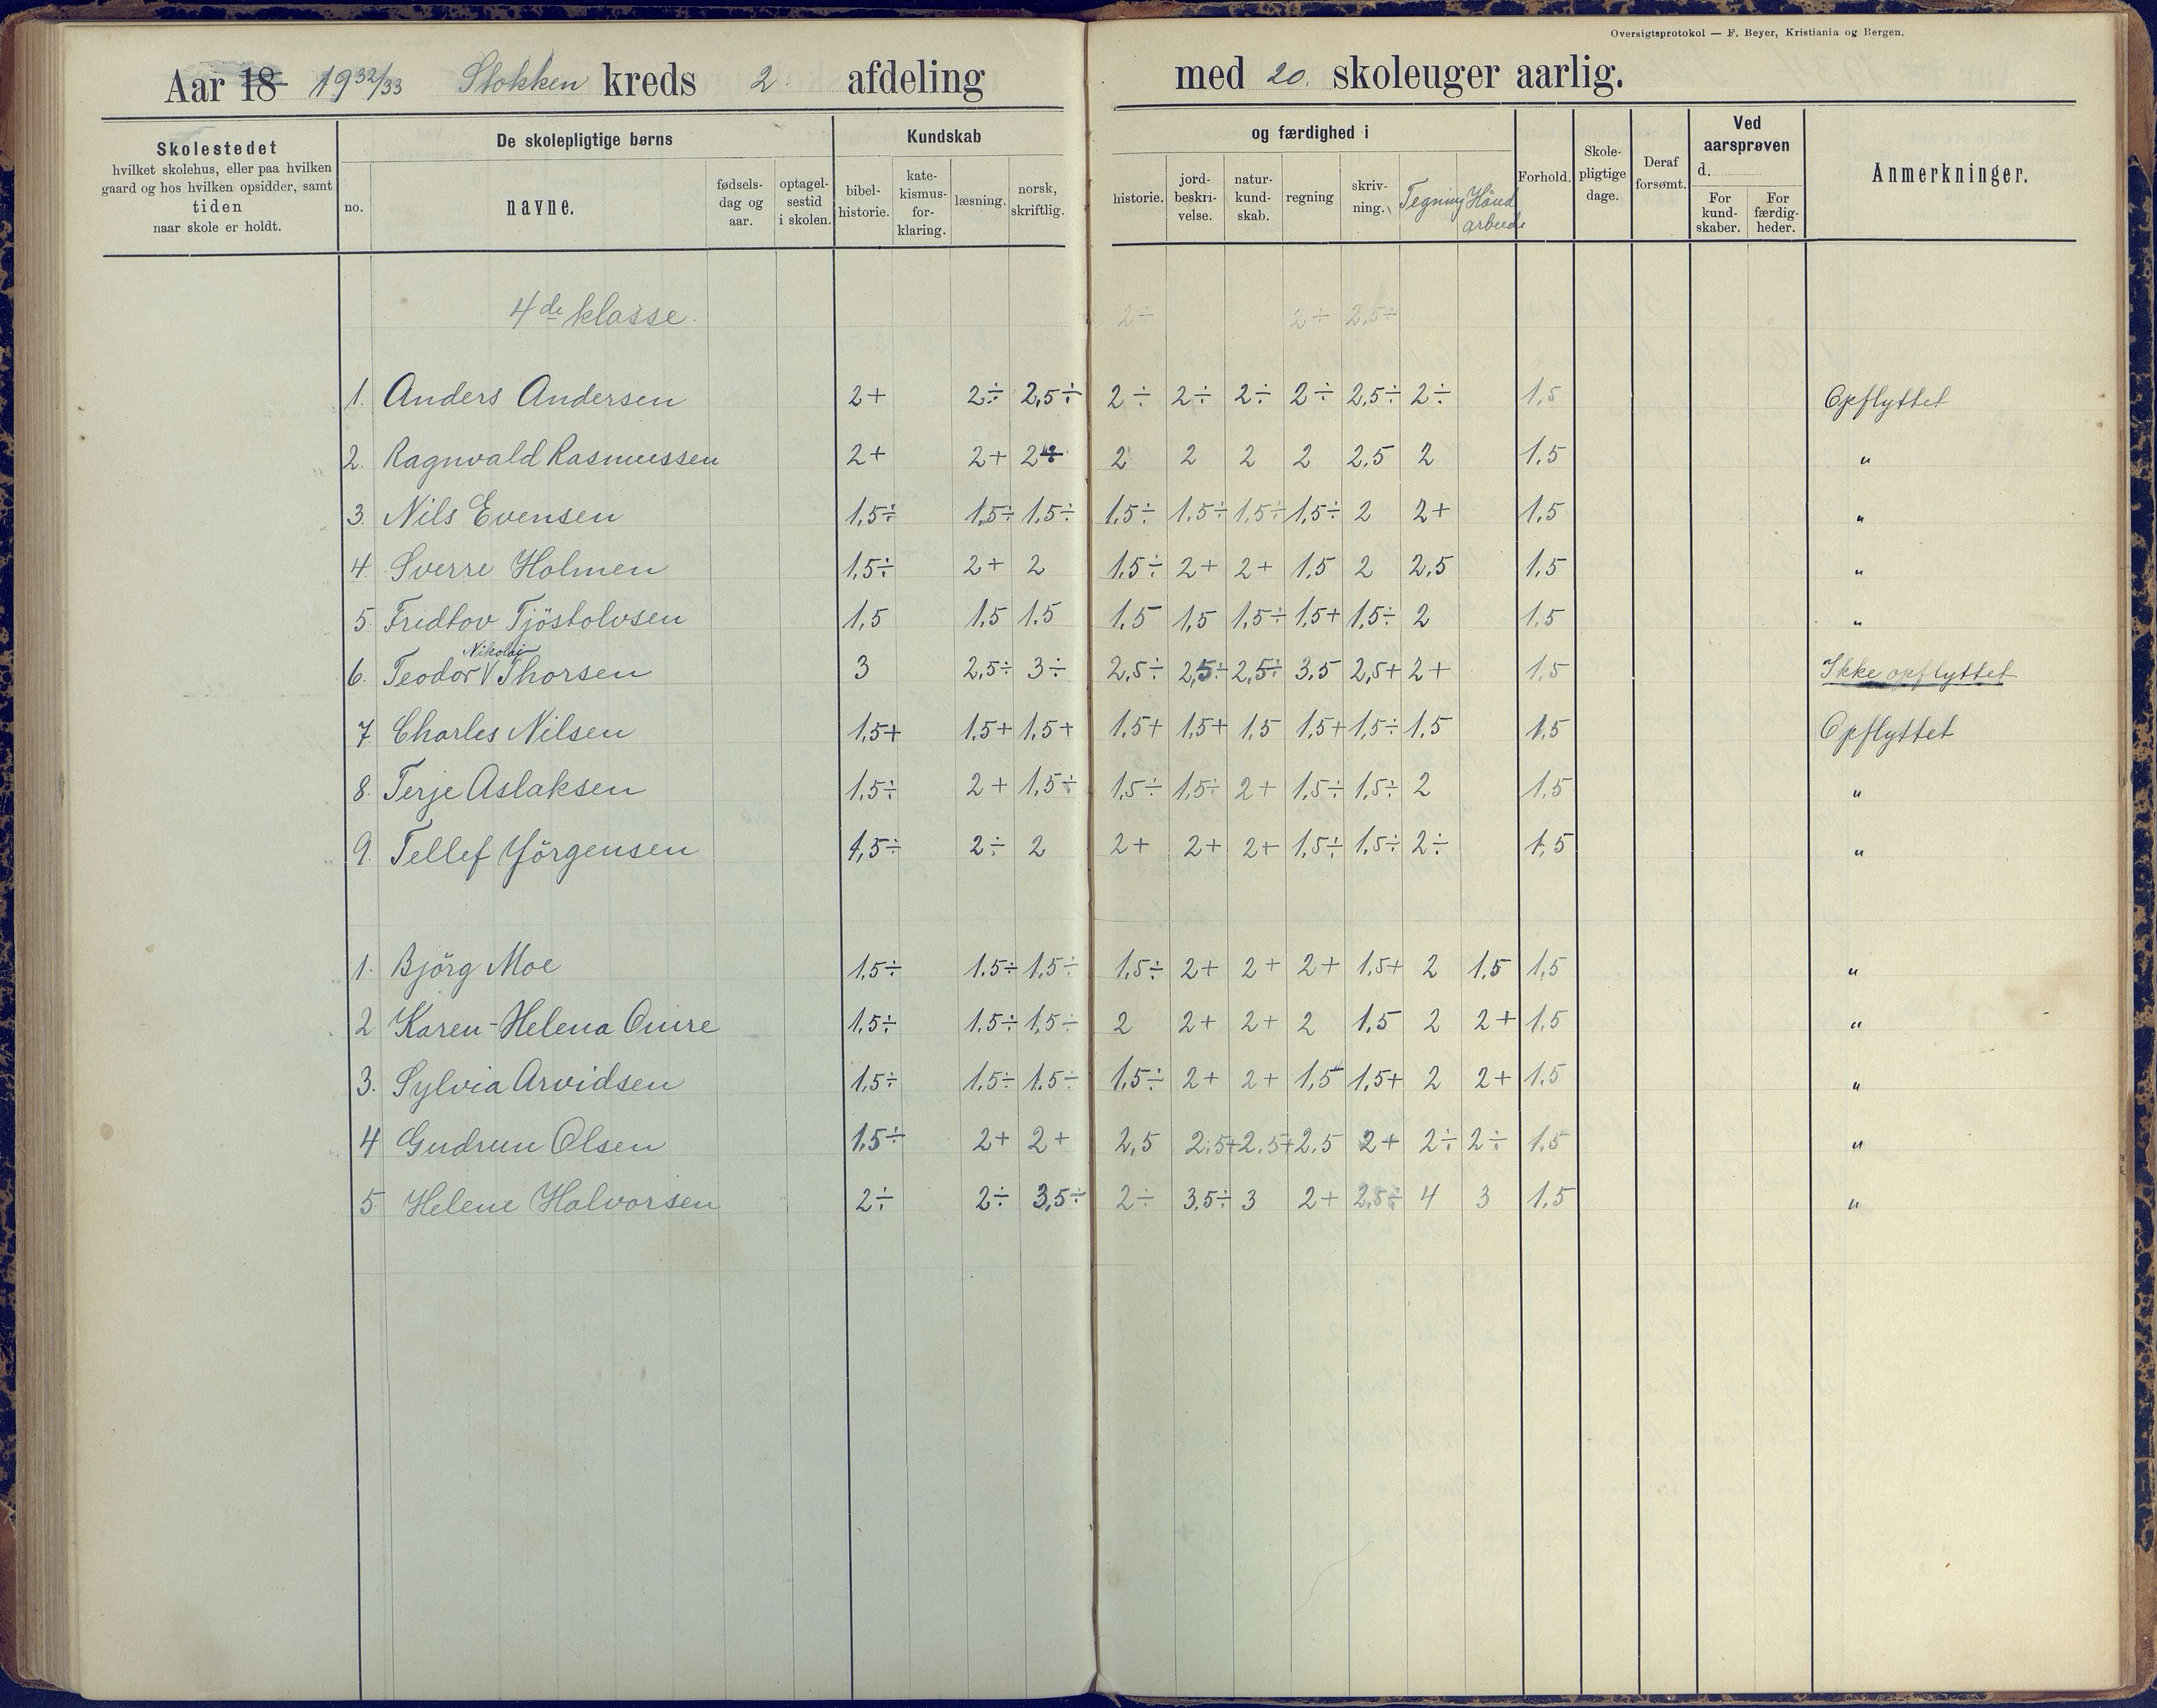 Oversigtsprotokol — F. Beyer, Kristiania og Bergen.
Aar 18 1932/33 Stokken kreds 2 afdeling med 20. skoleuger aarlig.
Skolestedet
hvilket skolehus, eller paa hvilken
gaard og hos hvilken opsidder, samt
tiden
naar skole er holdt.
De skolepligtige børns
no.
navne.
fødsels-
dag og
aar.
optagel-
sestid
i skolen.
Kundskab
bibel-
historie.
kate-
kismus-
for-
klaring.
læsning.
norsk,
skriftlig.
og færdighed i
historie.
jord-
beskri-
velse.
natur-
kund-
skab.
regning
skriv-
ning.
Tegning
Hånd
arbeide
Forhold.
Skole-
pligtige
dage.
Deraf
forsømt.
Ved
aarsprøven
d.
For
kund-
skaber.
For
færdig-
heder.
Anmerkninger.
4de klasse. 2÷ 2÷ 2,5÷
1. Anders Andersen 2+ 2÷ 2,5÷ 2÷ 2÷ 2÷ 2÷ 2,5÷ 2÷ 1,5 Opflyttet
2. Ragnvald Rasmussen 2+ 2+ 2+ 2 2 2 2 2,5 2 1,5 "
3. Nils Evensen 1,5÷ 1,5÷ 1,5÷ 1,5÷ 1,5÷ 1,5÷ 1,5÷ 2 2+ 1,5 "
4. Sverre Holmen 1,5÷ 2+ 2 1,5÷ 2+ 2+ 1,5 2 2,5 1,5 "
5. Fridtov Tjöstolvsen 1,5 1,5 1.5 1,5 1,5 1,5÷ 1,5+ 1,5÷ 2 1,5 "
Nikolai
6. Teodor V Thorsen 3 2,5÷ 3÷ 2,5÷ 2,5÷ 2,5÷ 3,5 2,5+ 2+ 1,5 Ikke opflyttet
7. Charles Nilsen 1,5+ 1,5+ 1,5+ 1,5+ 1,5+ 1,5 1,5+ 1,5÷ 1,5 1,5 Opflyttet
8. Terje Aslaksen 1,5÷ 2+ 1,5÷ 1,5÷ 1,5÷ 2+ 1,5÷ 1,5÷ 2 1,5 "
9. Tellef Jörgensen 1,5÷ 2÷ 2 2+ 2+ 2+ 1,5÷ 1,5÷ 2÷ 1,5 "
1. Björg Moe 1,5÷ 1.5÷ 1,5÷ 1,5÷ 2+ 2+ 2+ 1,5+ 2 1,5 1,5 "
2 Karen-Helena Omre 1,5÷ 1,5÷ 1,5÷ 2 2+ 2+ 2 1,5 2 2+ 1,5 "
3. Sylvia Arvidsen 1,5÷ 1,5÷ 1.5÷ 1,5÷ 2+ 2+ 1,5+ 1,5+ 2 2+ 1,5 "
4 Gudrun Olsen 1,5÷ 2+ 2+ 2,5 2,5+ 2,5+ 2,5 2+ 2÷ 2÷ 1,5 "
5. Helene Halvorsen 2÷ 2÷ 3,5÷ 2÷ 3,5÷ 3 2+ 2,5÷ 4 3 1,5 "